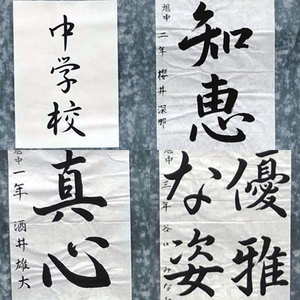 中学校
知恵
旭中 二年 櫻井 深那
真心
旭中 一年 酒井 雄大
優雅
な姿
旭中 三年 谷川 みなみ